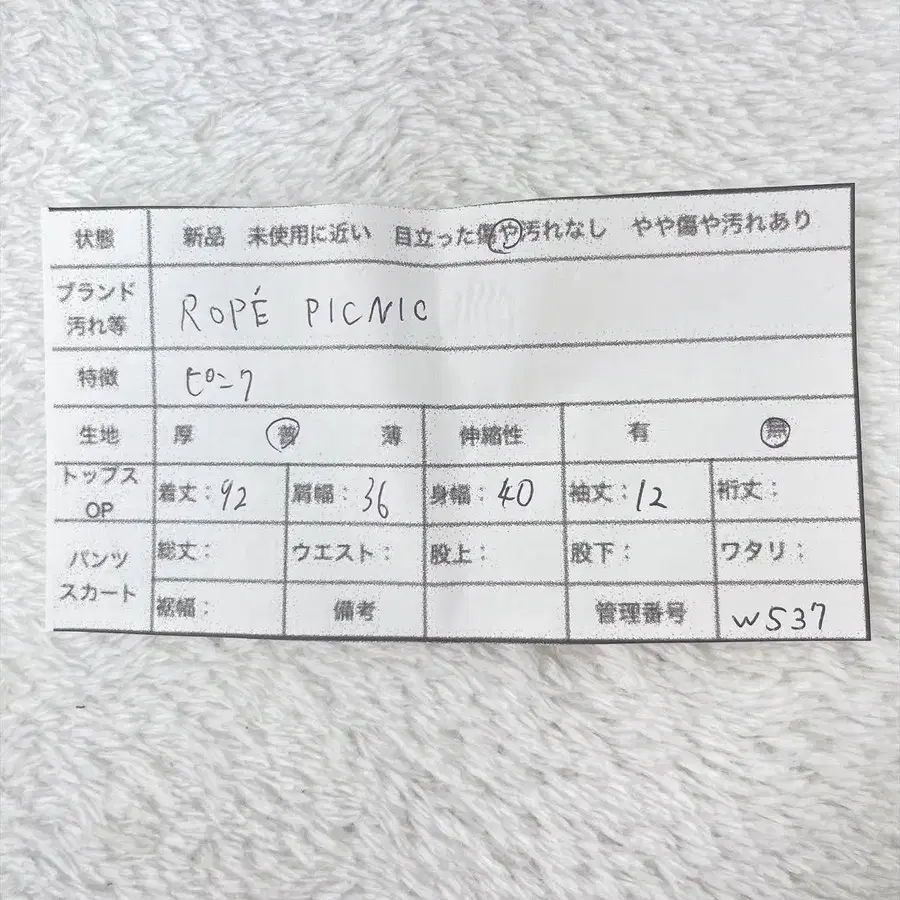 状態 新品 未使用に近い 目立った傷や汚れなし やや傷や汚れあり
ブランド
汚れ等 ROPÉ PICNIC
特徴 ピンク
生地 厚 普 薄 伸縮性 有 無
トップス
OP 着丈:92 肩幅:36 身幅:40 袖丈:12 裄丈:
パンツ
スカート 総丈: ウエスト: 股上: 股下: ワタリ:
裾幅: 備考 管理番号 W537